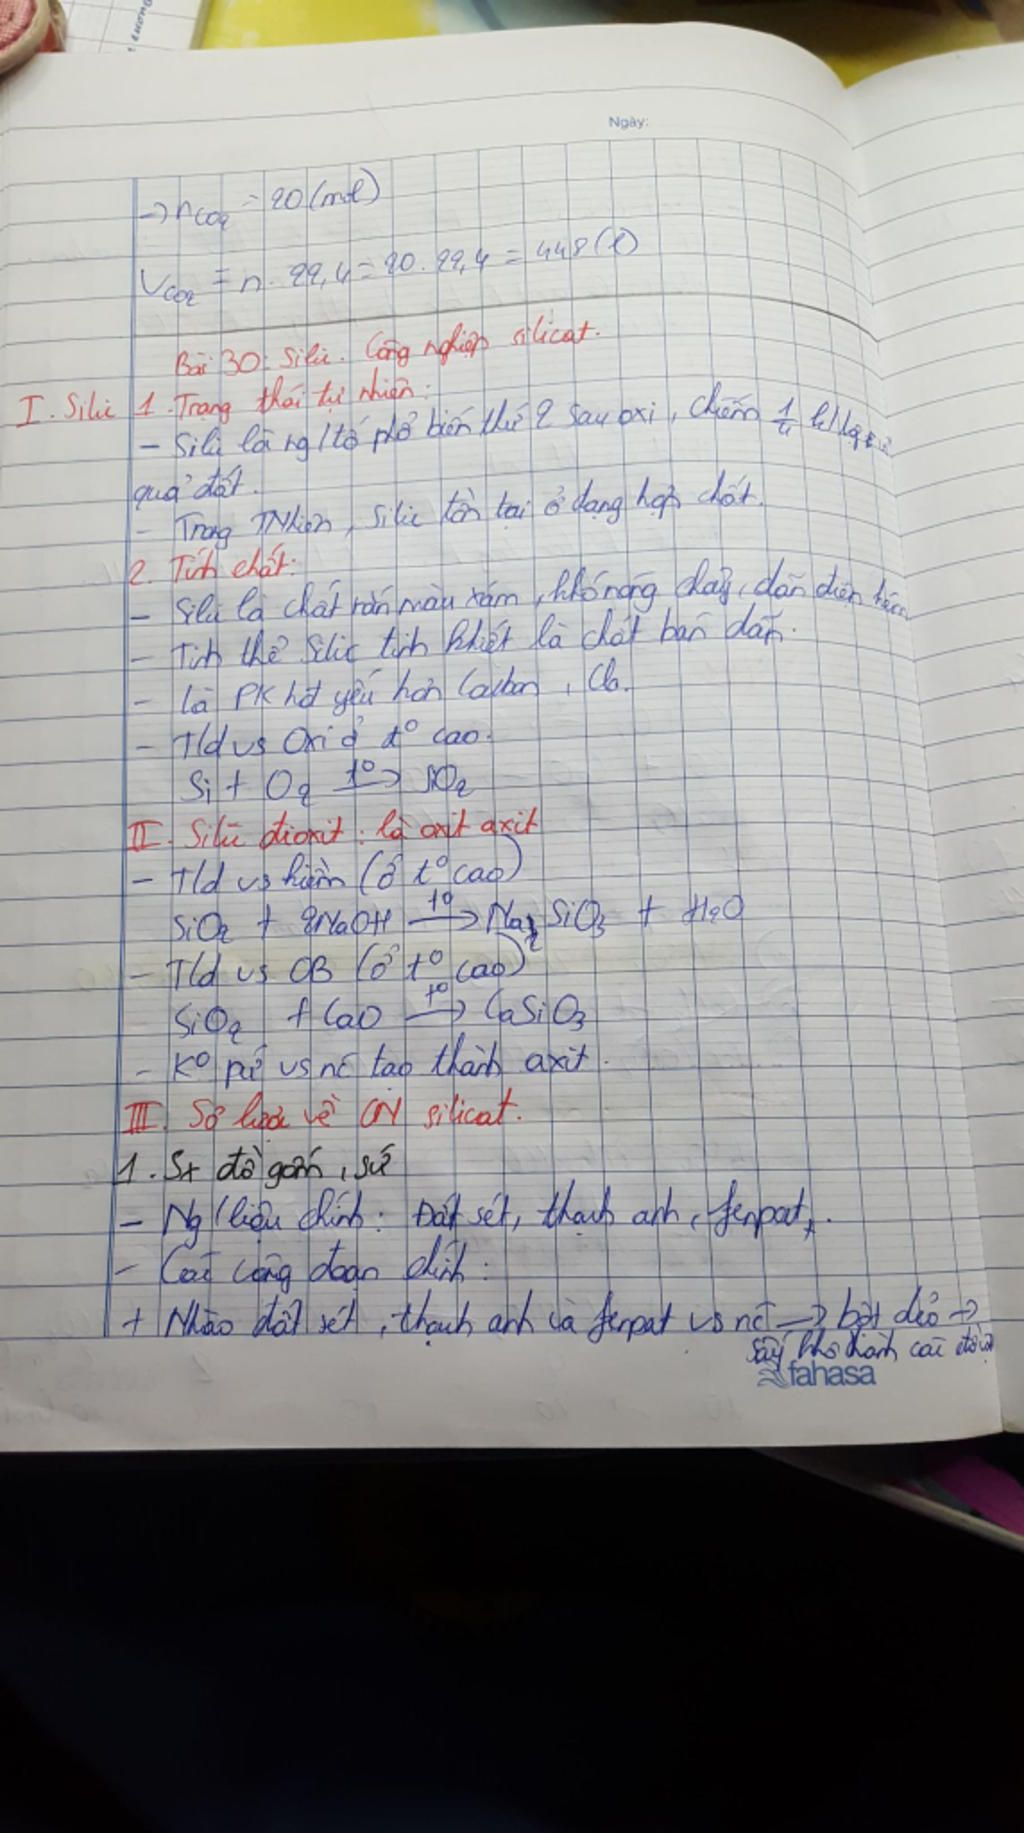 Ngày:
→ nCO2 = 20 (mol)
VCO2 = n. 22,4 = 20. 22,4 = 448 (l)
Bài 30: Silic. Công nghiệp silicat.
I. Silic 1. Trạng thái tự nhiên:
- Silic là ng/tố phổ biến thứ 2 sau oxi, chiếm 1/4 k/lg
quả đất.
- Trong TNhiên, silic tồn tại ở dạng hợp chất.
2. Tính chất:
- Silic là chất rắn màu xám, khó nóng chảy, dẫn điện kém
- Tinh thể Silic tinh khiết là chất bán dẫn.
- Là PK hđ yếu hơn Cacbon, Clo.
- T/d vs Oxi ở t° cao.
Si + O2 t°→ SiO2
II. Silic đioxit: là oxit axit
- T/d vs kiềm (ở t° cao)
SiO2 + 2NaOH t°→ Na2SiO3 + H2O
- T/d vs OB (ở t° cao)
SiO2 + CaO t°→ CaSiO3
- K° pứ vs nc tạo thành axit.
III. Sơ lược về CN silicat.
1. Sx đồ gốm, sứ
- Ng/liệu chính: Đất sét, thạch anh, fenpat.
- Các công đoạn chính:
+ Nhào đất sét, thạch anh và fenpat vs nc → bột dẻo →
sấy khô thành các đồ vật
fahasa